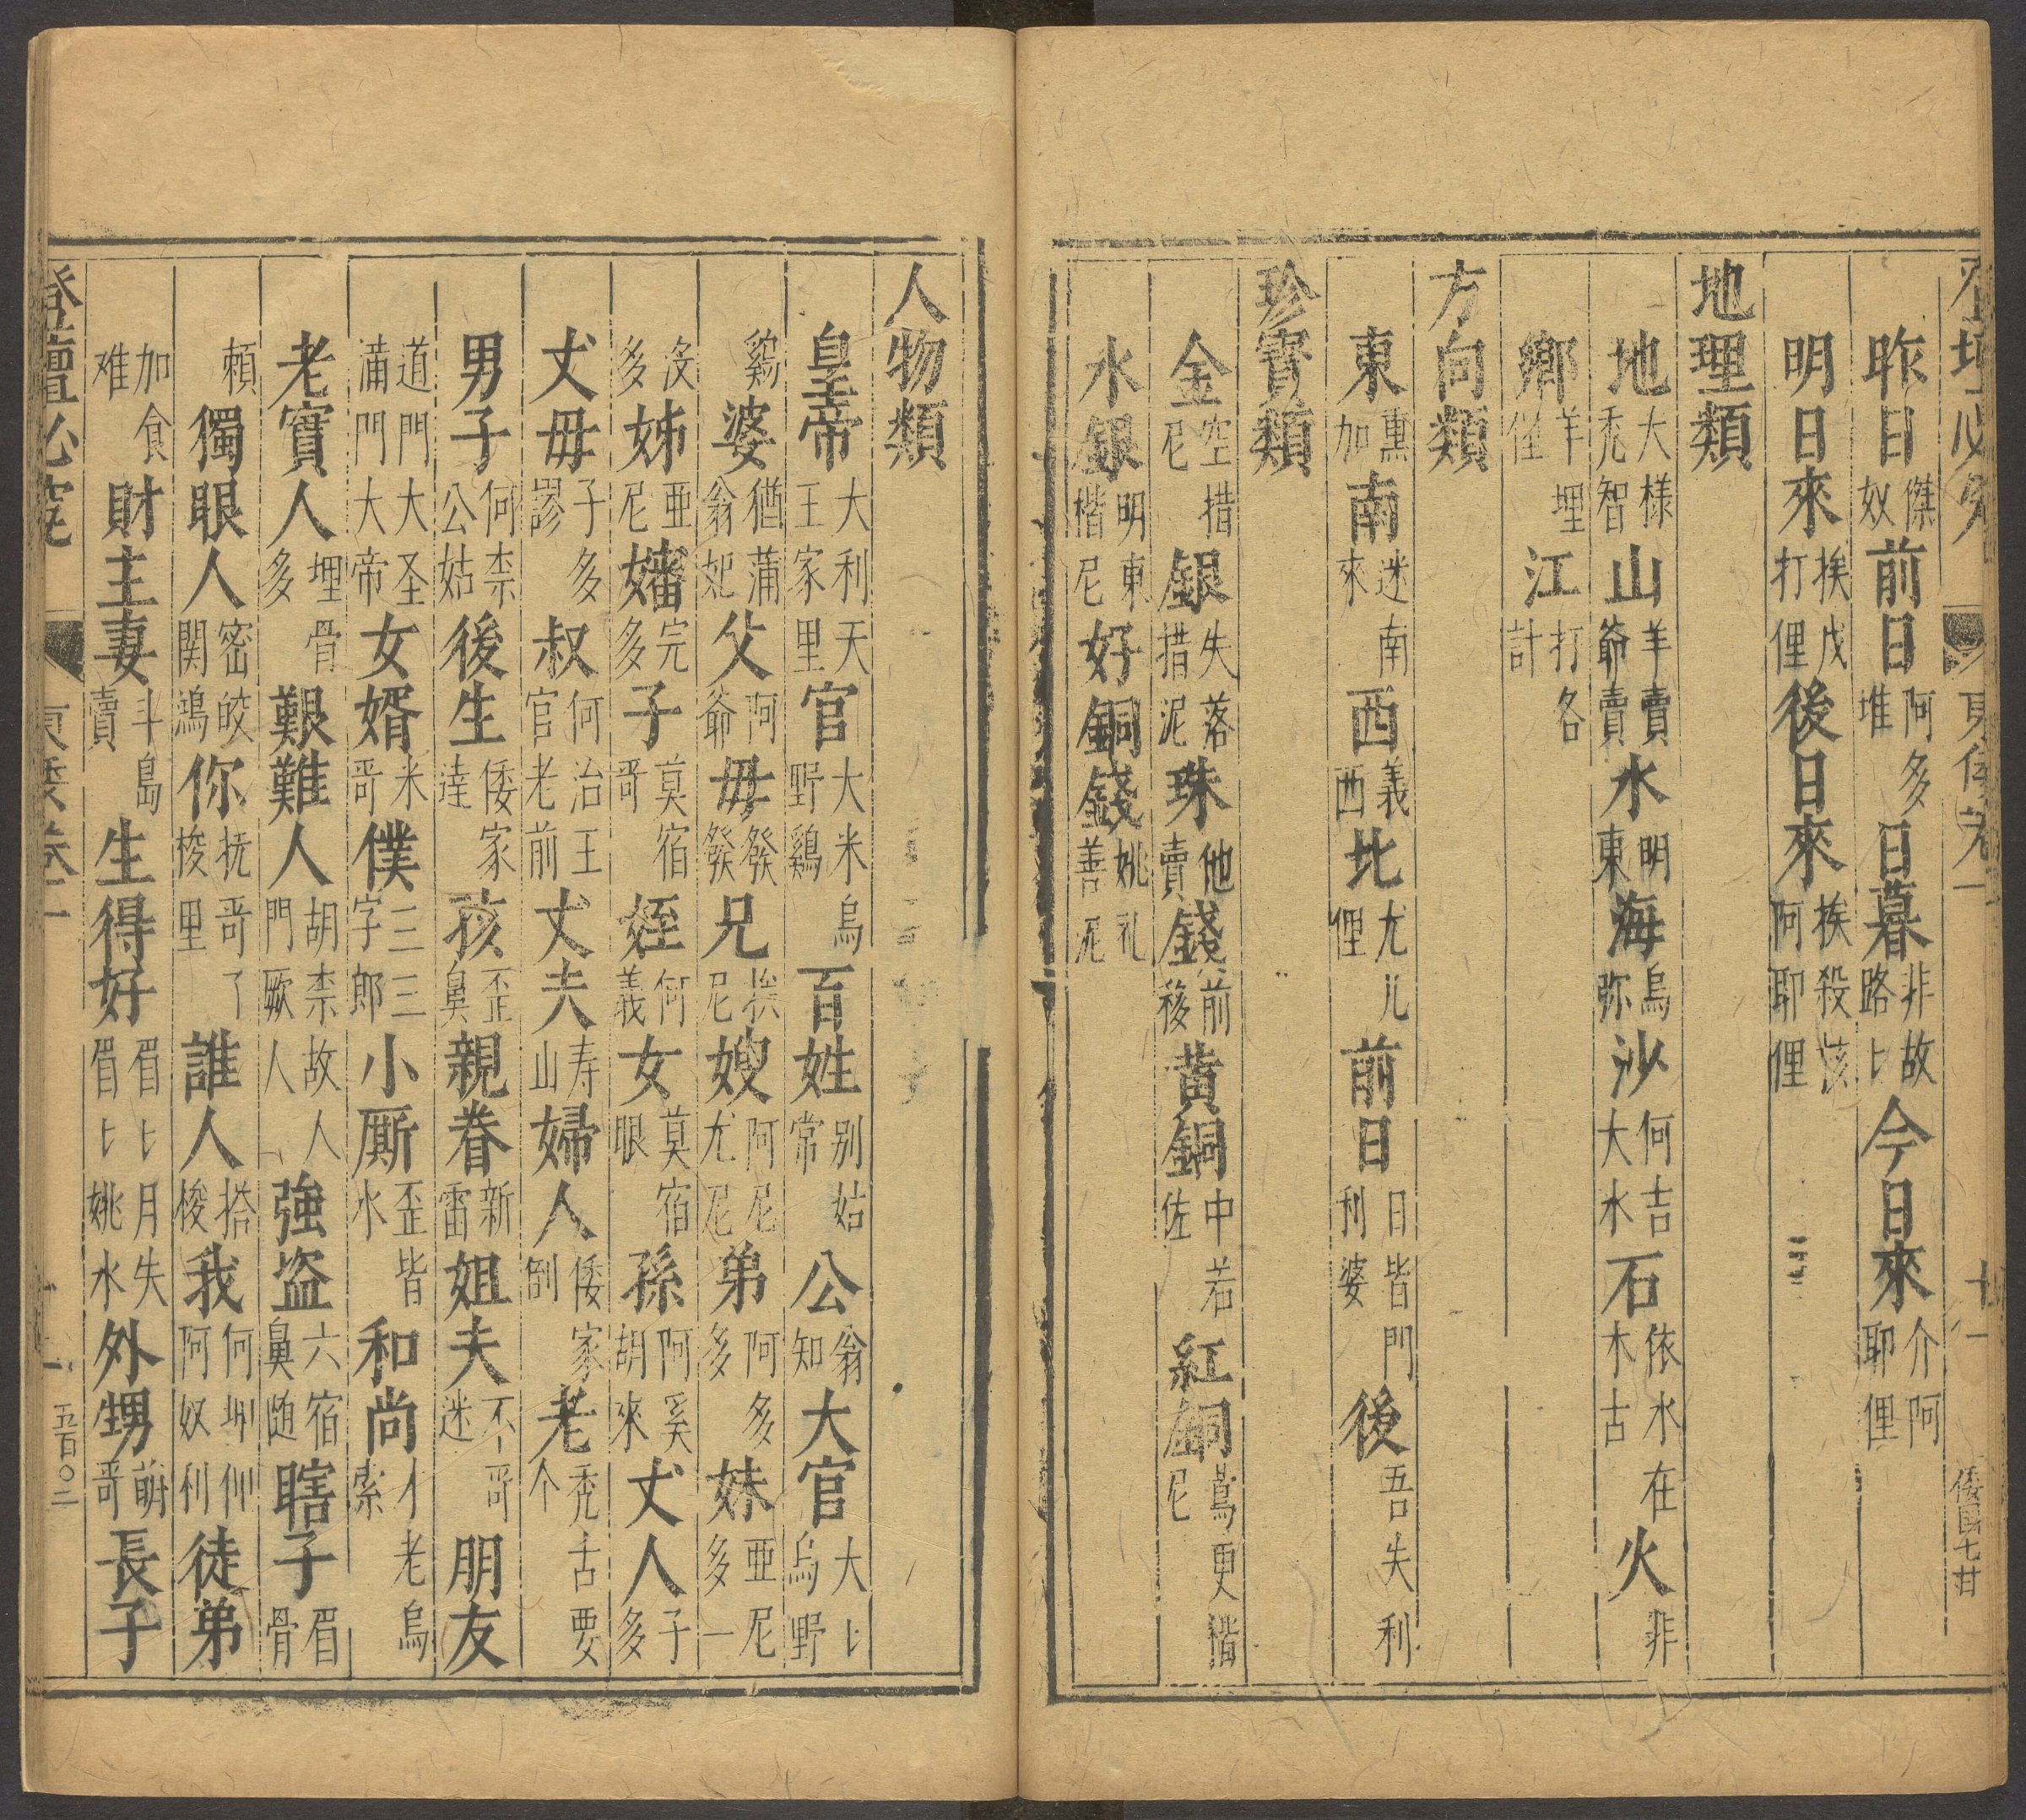 昨日傑奴前日阿多堆日暮非故路〻今日來介阿耶俚
明日來挨戊打俚後日來挨殺該阿耶俚
地理類
地大樣禿智山羊賣爺賣水明東海烏弥沙何吉大水石依水在木古火非
鄉羊埋俚江打各計
方向類
東熏加南迷南來西義西北尤儿俚前日日皆門利婆後吾失利
珍寶類
金空措尼銀失落措泥珠他賣錢前移黄銅中若佐紅銅蔦更措尼
水銀明東楷尼好銅錢姚礼善泥
人物類
皇帝大利天王家里官大米烏野鷄百姓别姑常公翁知大官大〻烏野
鷄婆猶蒲翁妃父阿爺母發發兄挨尼嫂阿尼尤尼弟阿多多妹亞尼多一
多姊亞尼嬸完多子莫宿哥姪何義女莫宿眼孫阿奚胡來丈人子多
丈母子多謬叔何治王官老前丈夫寿山婦人倭家倒老禿舌要个
男子何柰公姑後生倭家達孩歪鼻親眷新雷姐夫不哥迷朋友
道門大圣蒲門大帝女婿米哥僕三三字郎小厮歪皆水和尚老烏索
老實人埋骨多艱難人胡柰故人門厥人強盗六宿鼻随瞎子眉骨
頼獨眼人密皎関鴻你抚哥了梭里誰人搭梭我何阿奴利徒弟
加食难財主妻斗島賣生得好眉〻月失眉〻姚水外甥哥長子
登壇必究
東倭卷
五百〇二
倭国七廿